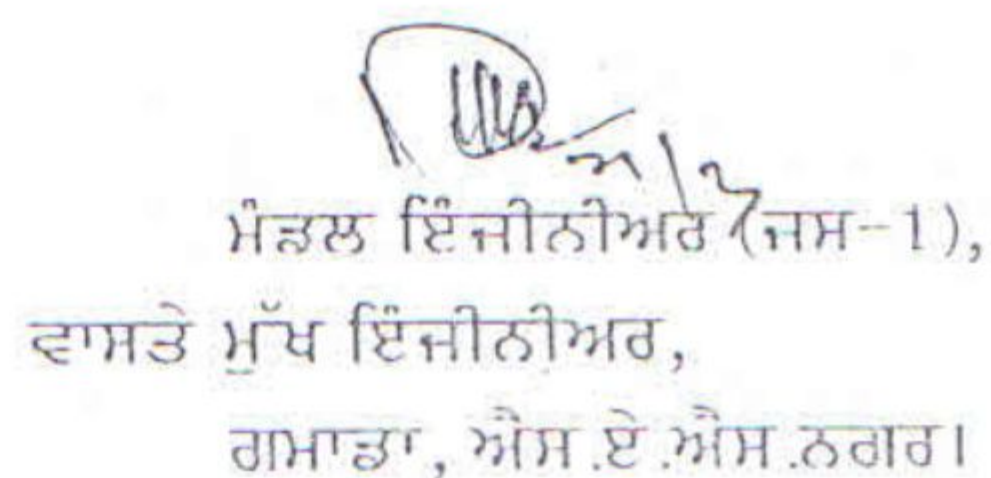 ਮੰਡਲ ਇੰਜੀਨੀਅਰ (ਜਸ-1),
ਵਾਸਤੇ ਮੁੱਖ ਇੰਜੀਨੀਅਰ,
ਗਮਾਡਾ, ਐਸ.ਏ.ਐਸ.ਨਗਰ।